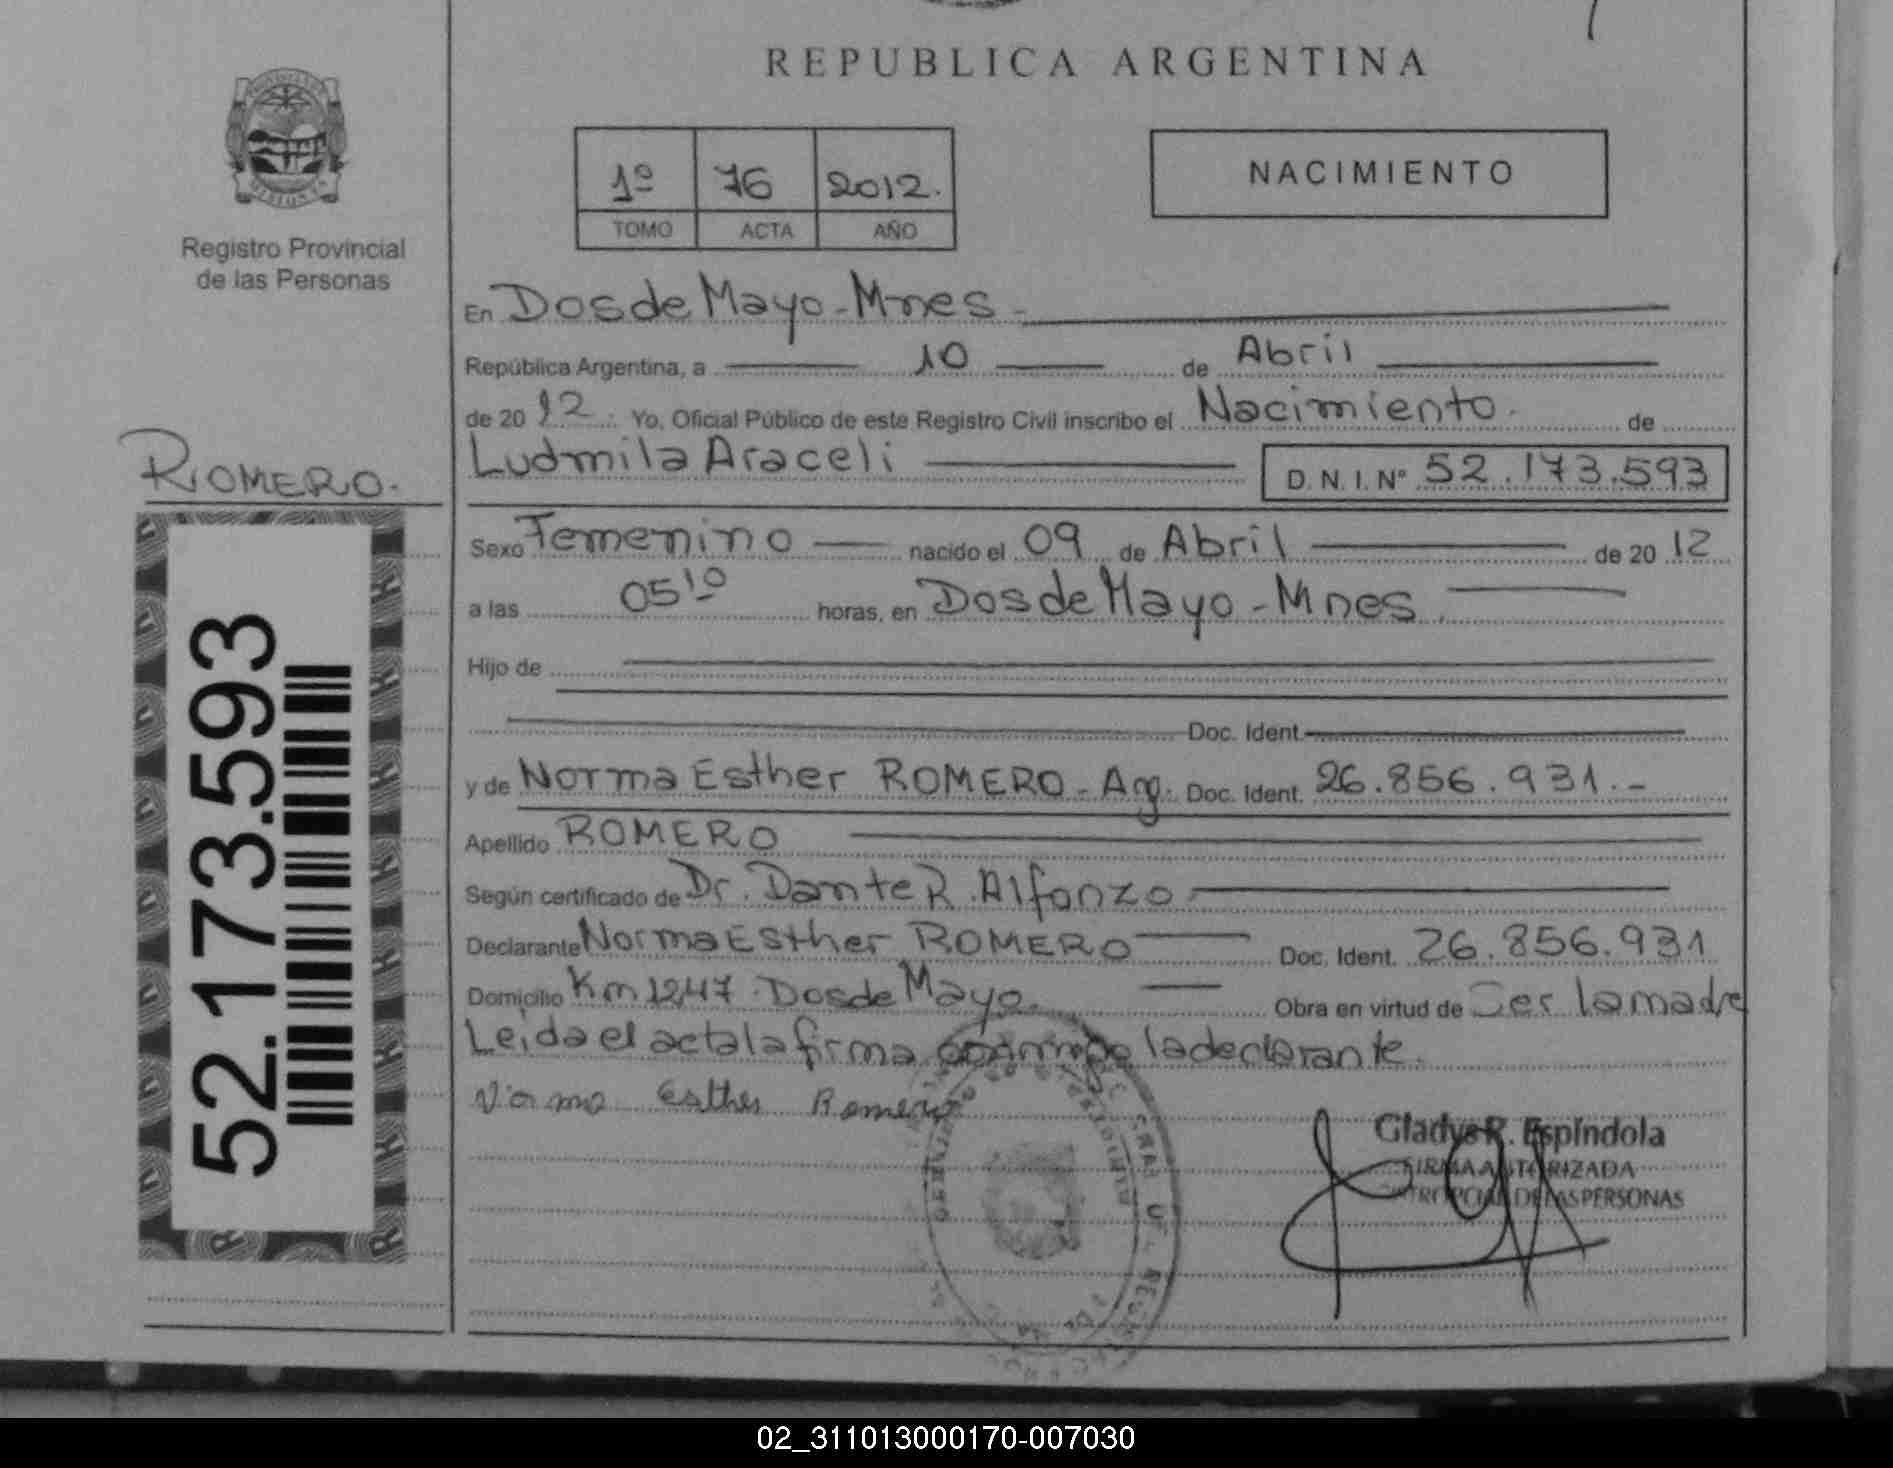 REPUBLICA ARGENTINA
1º 76 2012.
TOMO ACTA AÑO
NACIMIENTO
Registro Provincial
de las Personas
En Dos de Mayo - Mnes -
República Argentina, a 10 de Abril
de 20 12. Yo, Oficial Público de este Registro Civil inscribo el Nacimiento. de
Ludmila Araceli D. N. I. Nº 52.173.593
ROMERO.
52.173.593
Sexo Femenino nacido el 09 de Abril de 20 12
a las 05 10 horas, en Dos de Mayo - Mnes.
Hijo de
Doc. Ident.
y de Norma Esther ROMERO - Arg. Doc. Ident. 26.856.931.-
Apellido ROMERO
Según certificado de Dr. Dante R. Alfonzo
Declarante Norma Esther ROMERO Doc. Ident. 26.856.931
Domicilio Km 1247. Dos de Mayo. Obra en virtud de Ser la madre
Leida el acta la firma conmigo la declarante.
Norma Esther Romero
Gladys R. Espíndola
FIRMA AUTORIZADA
PCIAL DE LAS PERSONAS
02_311013000170-007030